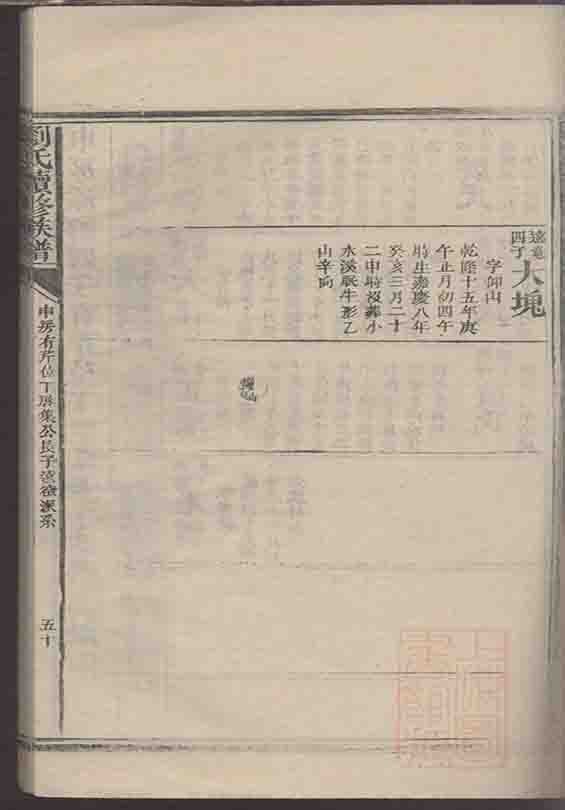 四子大塊
字仰山
乾隆十五年庚
午正月初四午
時生嘉慶八年
癸亥三月二十
二申時歿葬小
水溪眠牛形乙
山辛向
劉氏續修族譜
申房有芹位丁房集公長子
派系
五十